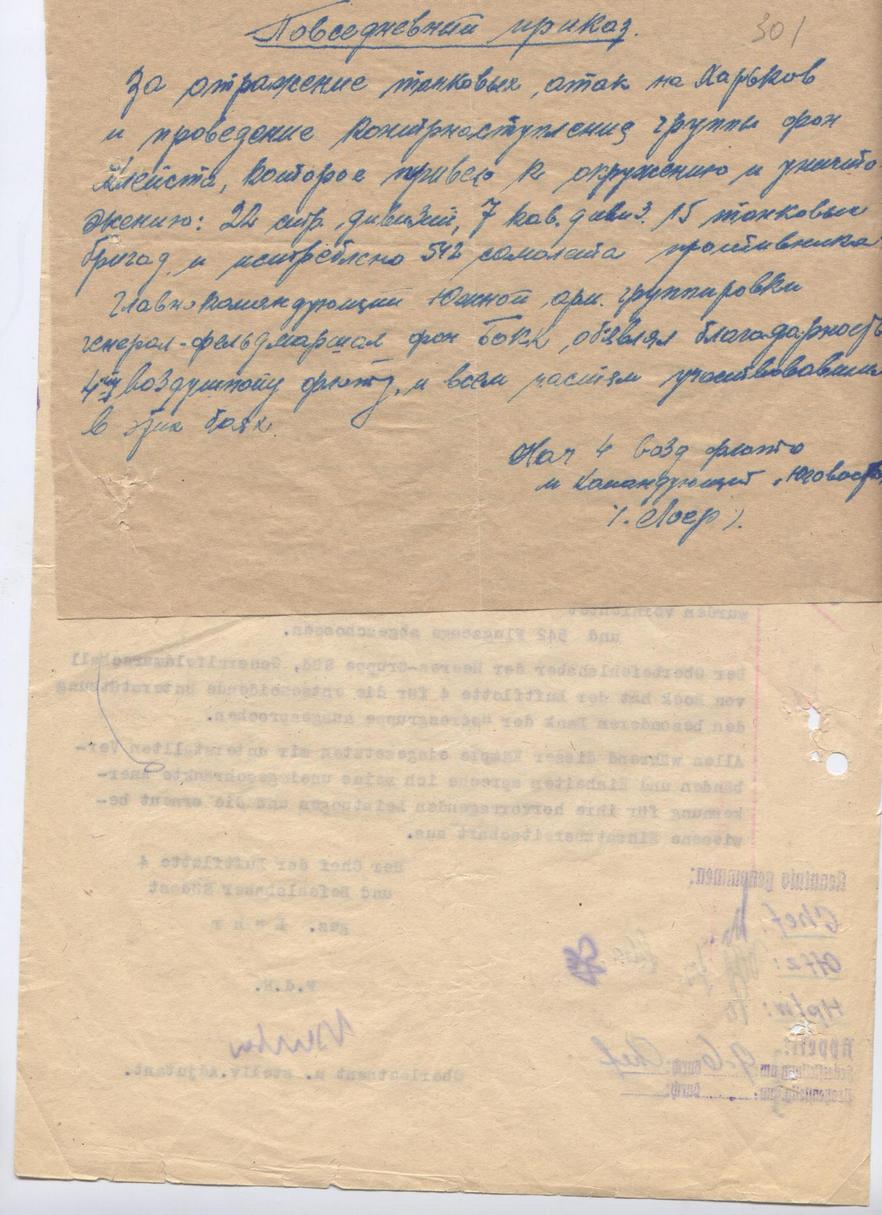 Повседневный приказ.
301
За отражение танковых атак на Харьков
и проведение контрнаступления группы фон
Клейста, которое привело к окружению и уничто-
жению: 22 стр. дивизий, 7 кав. дивиз. 15 танковых
бригад, и истреблено 542 самолета противника
Главнокомандующий Южной арм. группировки
генерал-фельдмаршал фон Бокк, объявлял благодарность
4му воздушному флоту, и всем частям участвовавшим
в этих боях.
Нач 4 возд флота
и Командующий "Юговосто
/. Лоер /.
wurden vernichtet
und 542 Flugzeuge abgeschossen.
Der Oberbefehlshaber der Heeres-Gruppe Süd, Generalfeldmarschall
von Bock hat der Luftflotte 4 für die entscheidende Unterstützung
den besonderen Dank der Heeresgruppe ausgesprochen.
Allen während dieser Kämpfe eingesetzten mir unterstellten Ver-
bänden und Einheiten spreche ich meine uneingeschränkte Aner-
kennung für ihre hervorragenden Leistungen und die erneut be-
wiesene Einsatzbereitschaft aus.
Der Chef der Luftflotte 4
und Befehlshaber Südost
gez. L ö h r
F.d.R.
Oberleutnant u. stellv. Adjutant.
Kenntnis genommen:
Chef:
Offz:
Hptm:
durch: Chef
durch: